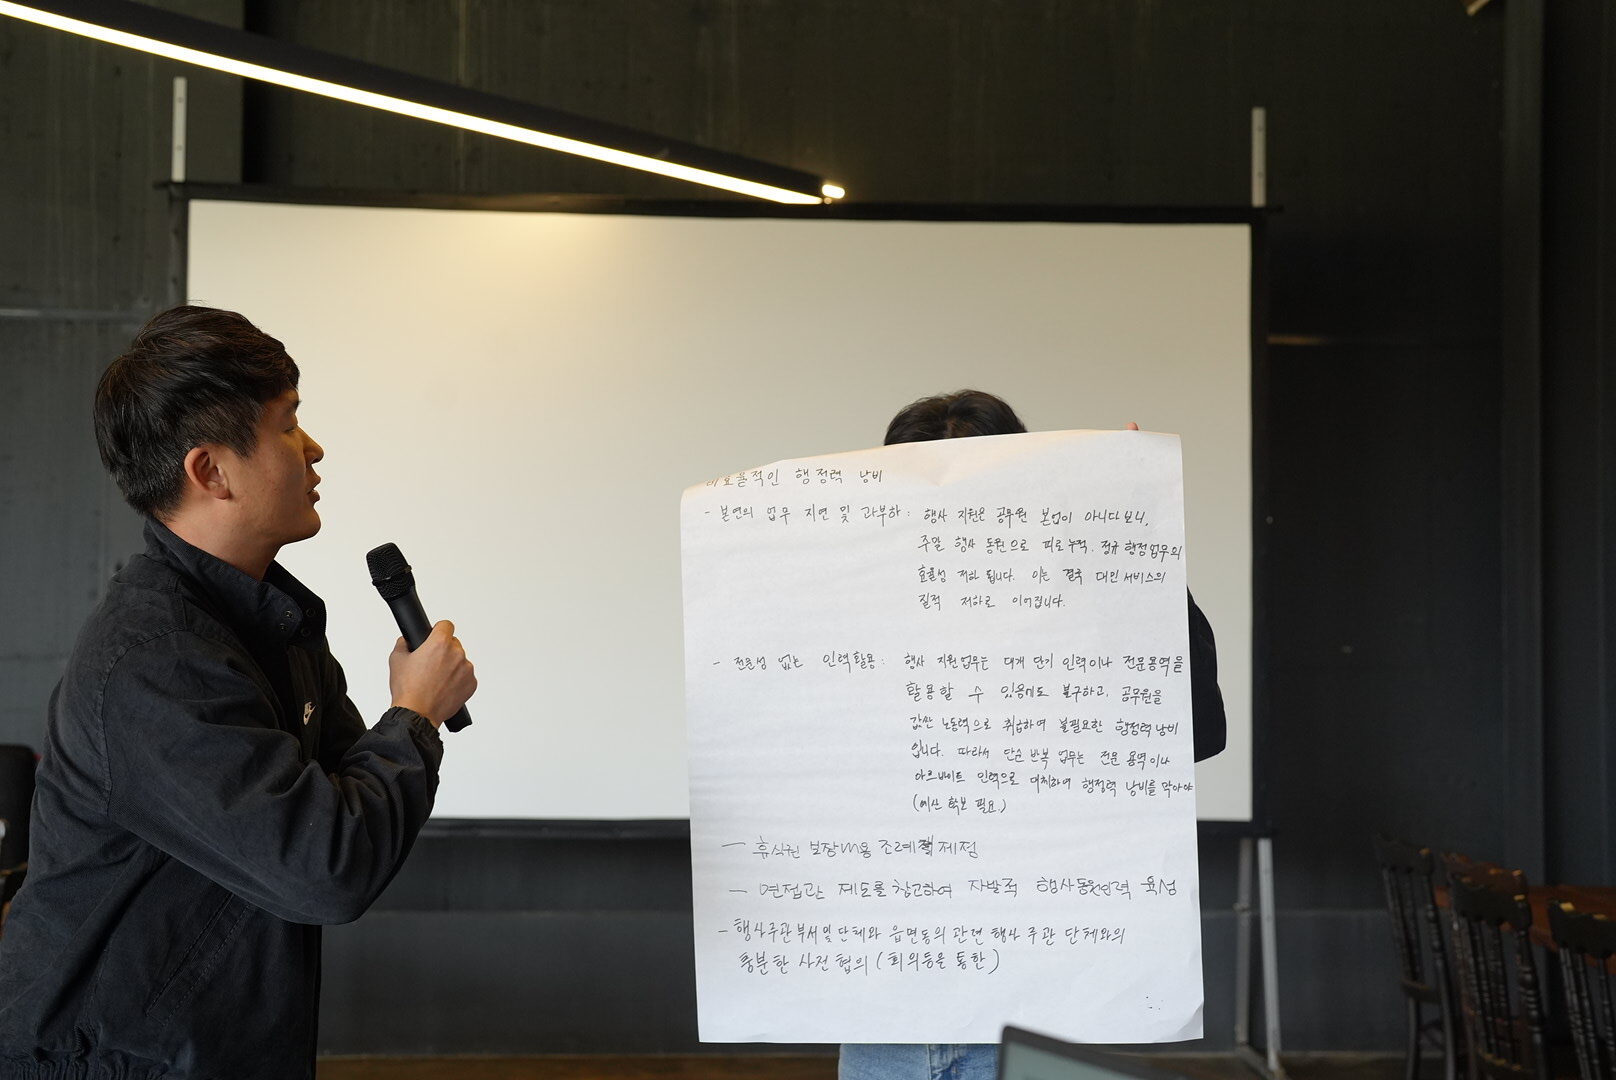 비효율적인 행정력 낭비
- 본연의 업무 지연 및 과부하 : 행사 지원은 공무원 본업이 아니다보니,
주말 행사 동원으로 피로누적, 정규행정업무의
효율성 저하 됩니다. 이는 결국 대민서비스의
질적 저하로 이어집니다.
- 전문성 없는 인력활용 : 행사 지원업무는 대개 단기 인력이나 전문용역을
활용할 수 있음에도 불구하고, 공무원을
값싼 노동력으로 취급하여 불필요한 행정력낭비
입니다. 따라서 단순 반복 업무는 전문 용역이나
아르바이트 인력으로 대치하여 행정력 낭비를 막아야
(예산 확보 필요.)
- 휴식권 보장내용 조례 제정
- 면접관 제도를 참고하여 자발적 행사동원인력 육성
- 행사주관부서및단체와 읍면동의 관련 행사 주관 단체와의
충분한 사전 협의 (회의등을 통한)